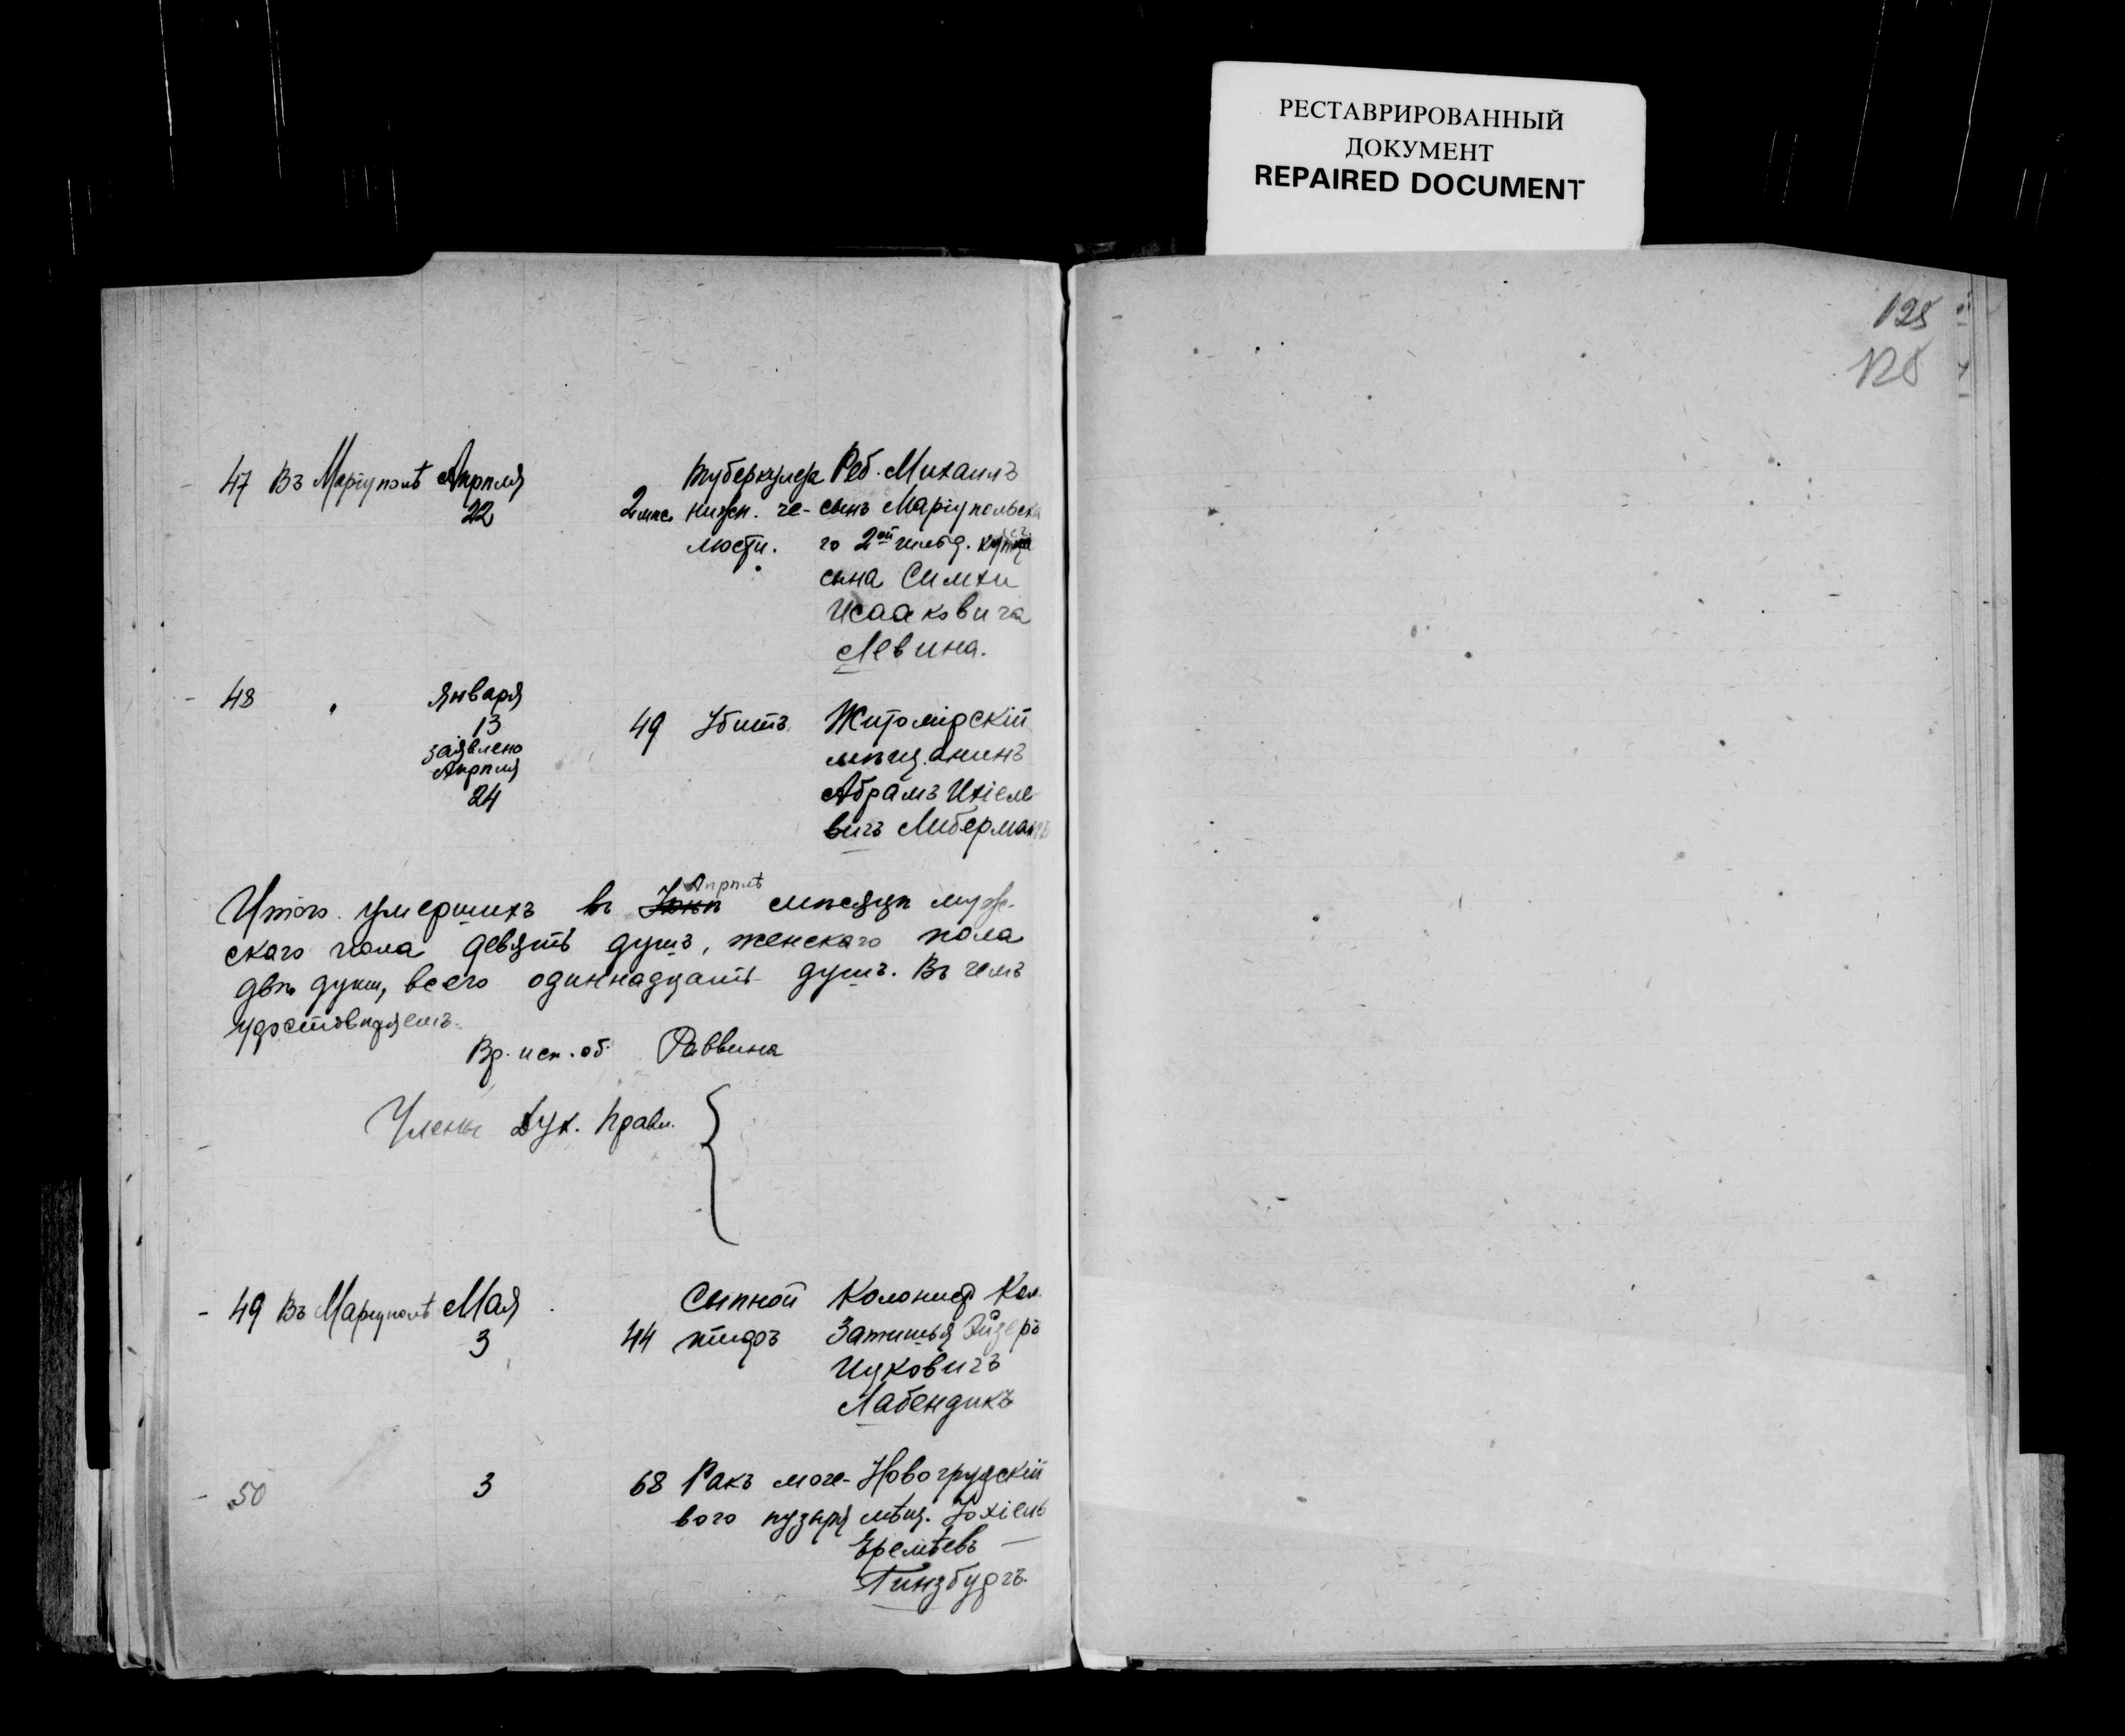 РЕСТАВРИРОВАННЫЙ
ДОКУМЕНТ
REPAIRED DOCUMENT
125
125
47 Въ Маріуполѣ Апрѣля 22 2 мѣс. туберкулез нижн. че-люсти. Реб. Михаилъ
сынъ Маріупольска
го 2ой гильд. купца
сына Симхи
Исааковича
Левина.
48 " Января 13 заявлено Апрѣля 24 49 Убитъ Житомірскій
мѣщанинъ
Абрамъ Ихіеле
вичъ Либерманъ
Итого умершихъ въ Апрѣлѣ мѣсяцѣ муж-
ского пола девять душъ, женскаго пола
двѣ души, всего одиннадцать душъ. Въ чемъ
удостовѣряемъ.
Вр. исп. об. Раввина
Члены Дух. Правл.
49 Въ Маріуполѣ Мая 3 44 Сыпной тифъ Колонист Кол.
Затишья Эйзеръ
Ицковичъ
Лабендикъ
50 3 68 Ракъ моче-вого пузыря Новогрудскій
мѣщ. Іохіель
Еремѣевъ
Гинзбургъ.